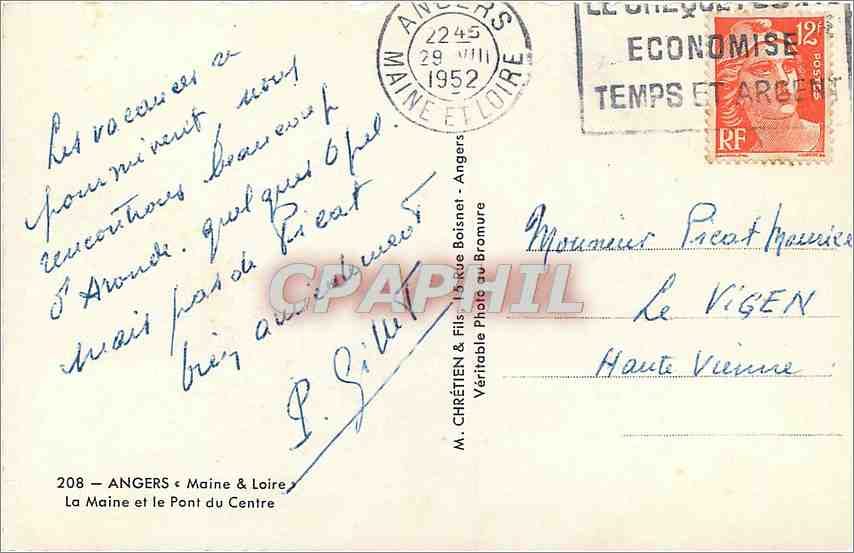 Les vacances se
poursuivent, nous
rencontrons beaucoup
d'Aronde. quelques Opel.
Mais pas de Picat
bien amicalement
P. Gillet
208 — ANGERS « Maine & Loire »
La Maine et le Pont du Centre
M. CHRÉTIEN & Fils, 15 Rue Boisnet - Angers
Véritable Photo au Bromure
ANGERS
22 45
29 VIII
1952
MAINE ET LOIRE
LE CHÈQUE POSTAL
ECONOMISE
TEMPS ET ARGENT
12F
POSTES
RF
Monsieur Picat Maurice
Le ViGEN
Haute Vienne
CPAPHIL